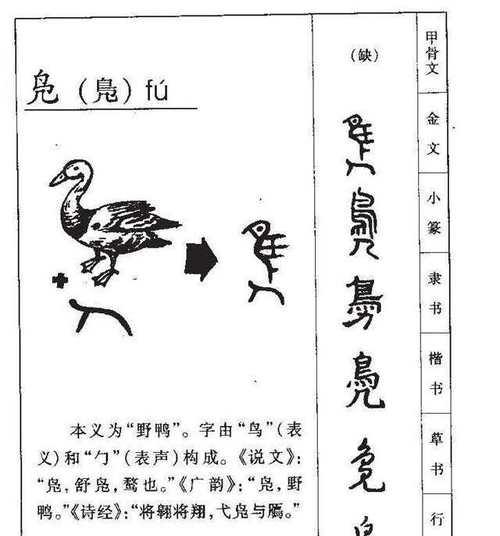 凫（鳧）fú
本义为“野鸭”。字由“鸟”（表
义）和“勹”（表声）构成。《说文》：
“凫，舒凫，鹜也。”《广韵》：“凫，野
鸭。”《诗经》：“将翱将翔，弋凫与鴈。”
（缺）
甲骨文
金文
小篆
隶书
楷书
草书
行
鳧